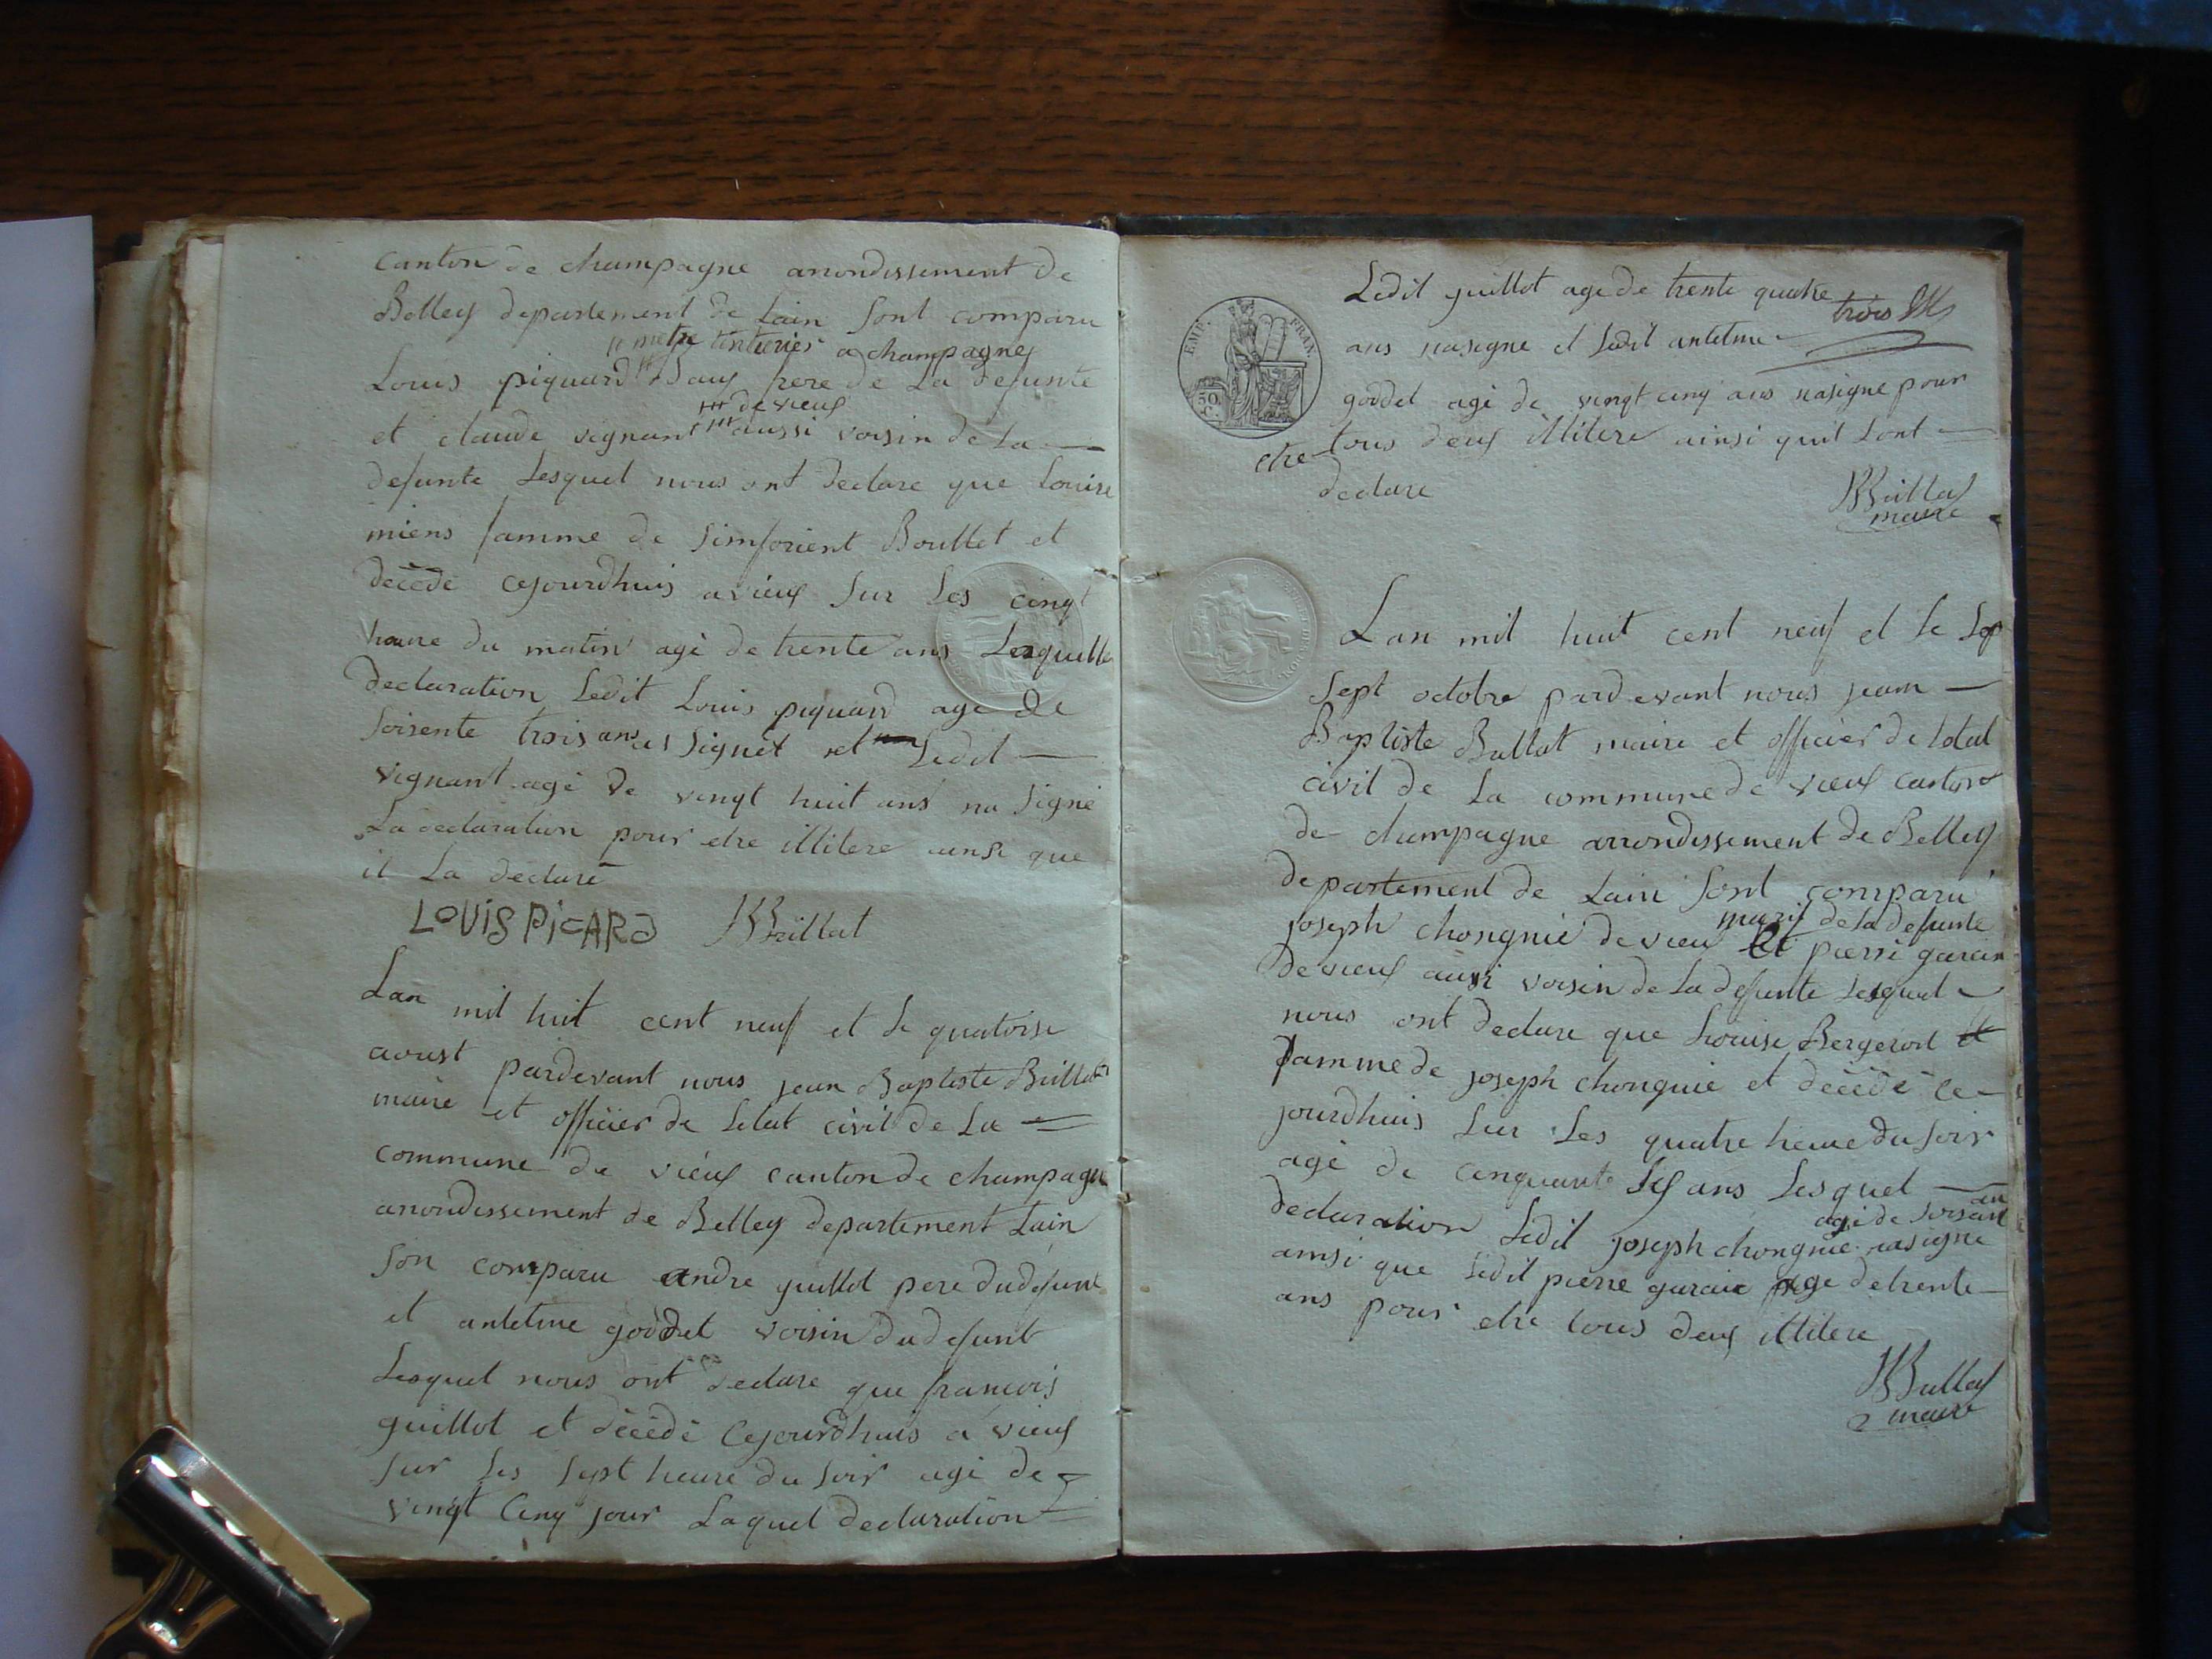 canton de champagne arrondissement de
Belley departement de Lain sont comparu
metre a champagne
Louis piquard frere de La defunte
de vieux
et claude vignant aussi voisin de La
defunte Lesquel nous ont declare que Louise
miens famme de simforient Boullet et
décédé cejourdhuis a vieux sur Les cinqt
heure du matin agé de trente ans Lesquelle
declaration Ledit Louis piquard agé de
soisente trois ans signet et Ledit
vignant agé de vingt huit ans na signé
La declaration pour etre illitere ainsi que
il La declaré
LOUIS PiCARD JBBrillat
Lan mil huit cent neuf et Le quatorse
aoust pardevant nous jean Baptiste Brillat
maire et officier de Letat civil de La
commune de vieux canton de champagne
arrondissement de Belley departement Lain
son comparu andre guillot pere dudefunt
et antelme goddet voisin dudefunt
Lesquel nous ont declare que francois
guillot et décédé Cejourdhuis a vieux
sur Les sept heure du soir agé de
vingt Cinq jour Laquel declaration
Ledit guillot age de trente quatre
trois
EMP. FRAN.
50 C.
ans nasigne et Ledit antelme
goddet agé de vingt cinq ans nasigne pour
etre tous deux illitere ainsi quil Lont
declare
JBBrillat
maire
Lan mil huit cent neuf et le sep
sept octobre pardevant nous jean
Baptiste Brillat maire et officier de Letat
civil de La commune de vieux canton
de champagne arrondissement de Belley
departement de Lain sont comparu
marif de La defunte
joseph chongnié de vieu et pierre garain
de vieux aussi voisin de La defunte Lesquel
nous ont declare que Louise Bergerot
famme de joseph chongnie et décédé ce
jourdhuis sur Les quatre heure du soir
agé de cinquante sex ans Lesquel
agé de soisant
declaration Ledit joseph chongnie nasigne
ainsi que Ledit pierre garain age detrente
ans pour etre tous deux illitere
JBBrillat
maire